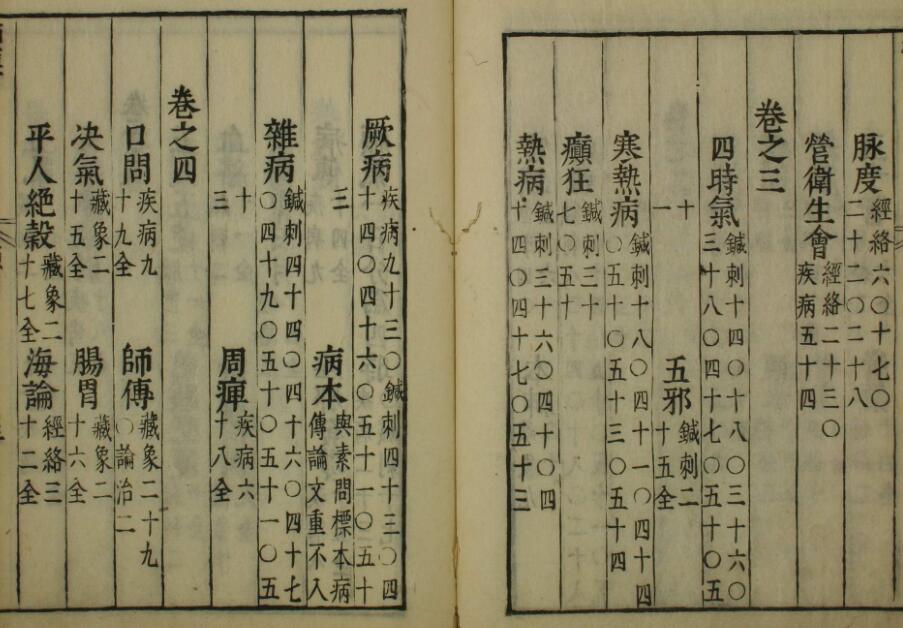 脉度 經絡六〇十七〇二十二〇二十八
營衛生會 經絡二十三〇疾病五十四
卷之三
四時氣 鍼刺十四〇十八〇三十六〇三十八〇四十七〇五十〇五
十一 五邪 鍼刺二十五全
寒熱病 鍼刺十八〇四十一〇四十四〇五十〇五十三〇五十四
癲狂 鍼刺三十七〇五十
熱病 鍼刺三十六〇四十〇四十四〇四十七〇五十三
厥病 疾病九十三〇鍼刺四十三〇四十四〇四十六〇五十一〇五十
三 病本 與素問標本病傳論文重不入
雜病 鍼刺四十四〇四十六〇四十七〇四十九〇五十〇五十一〇五
十三 周痺 疾病六十八全
卷之四
口問 疾病九十九全 師傳 藏象二十九〇論治二
决氣 藏象二十五全 腸胃 藏象二十六全
平人絕穀 藏象二十七全 海論 經絡三十二全